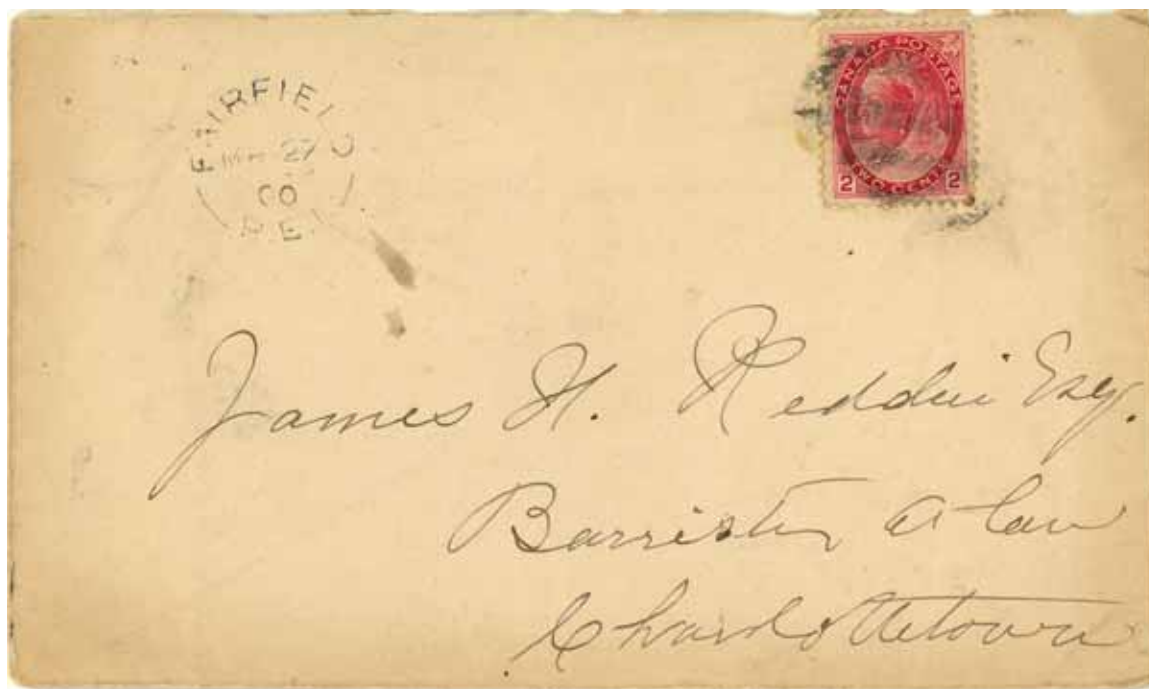 FAIRFIELD
MR 27
00
P.E.I.
CANADA POSTAGE
TWO CENTS
2 2
James H. Reddin Esq.
Barrister a law
Charlottetown